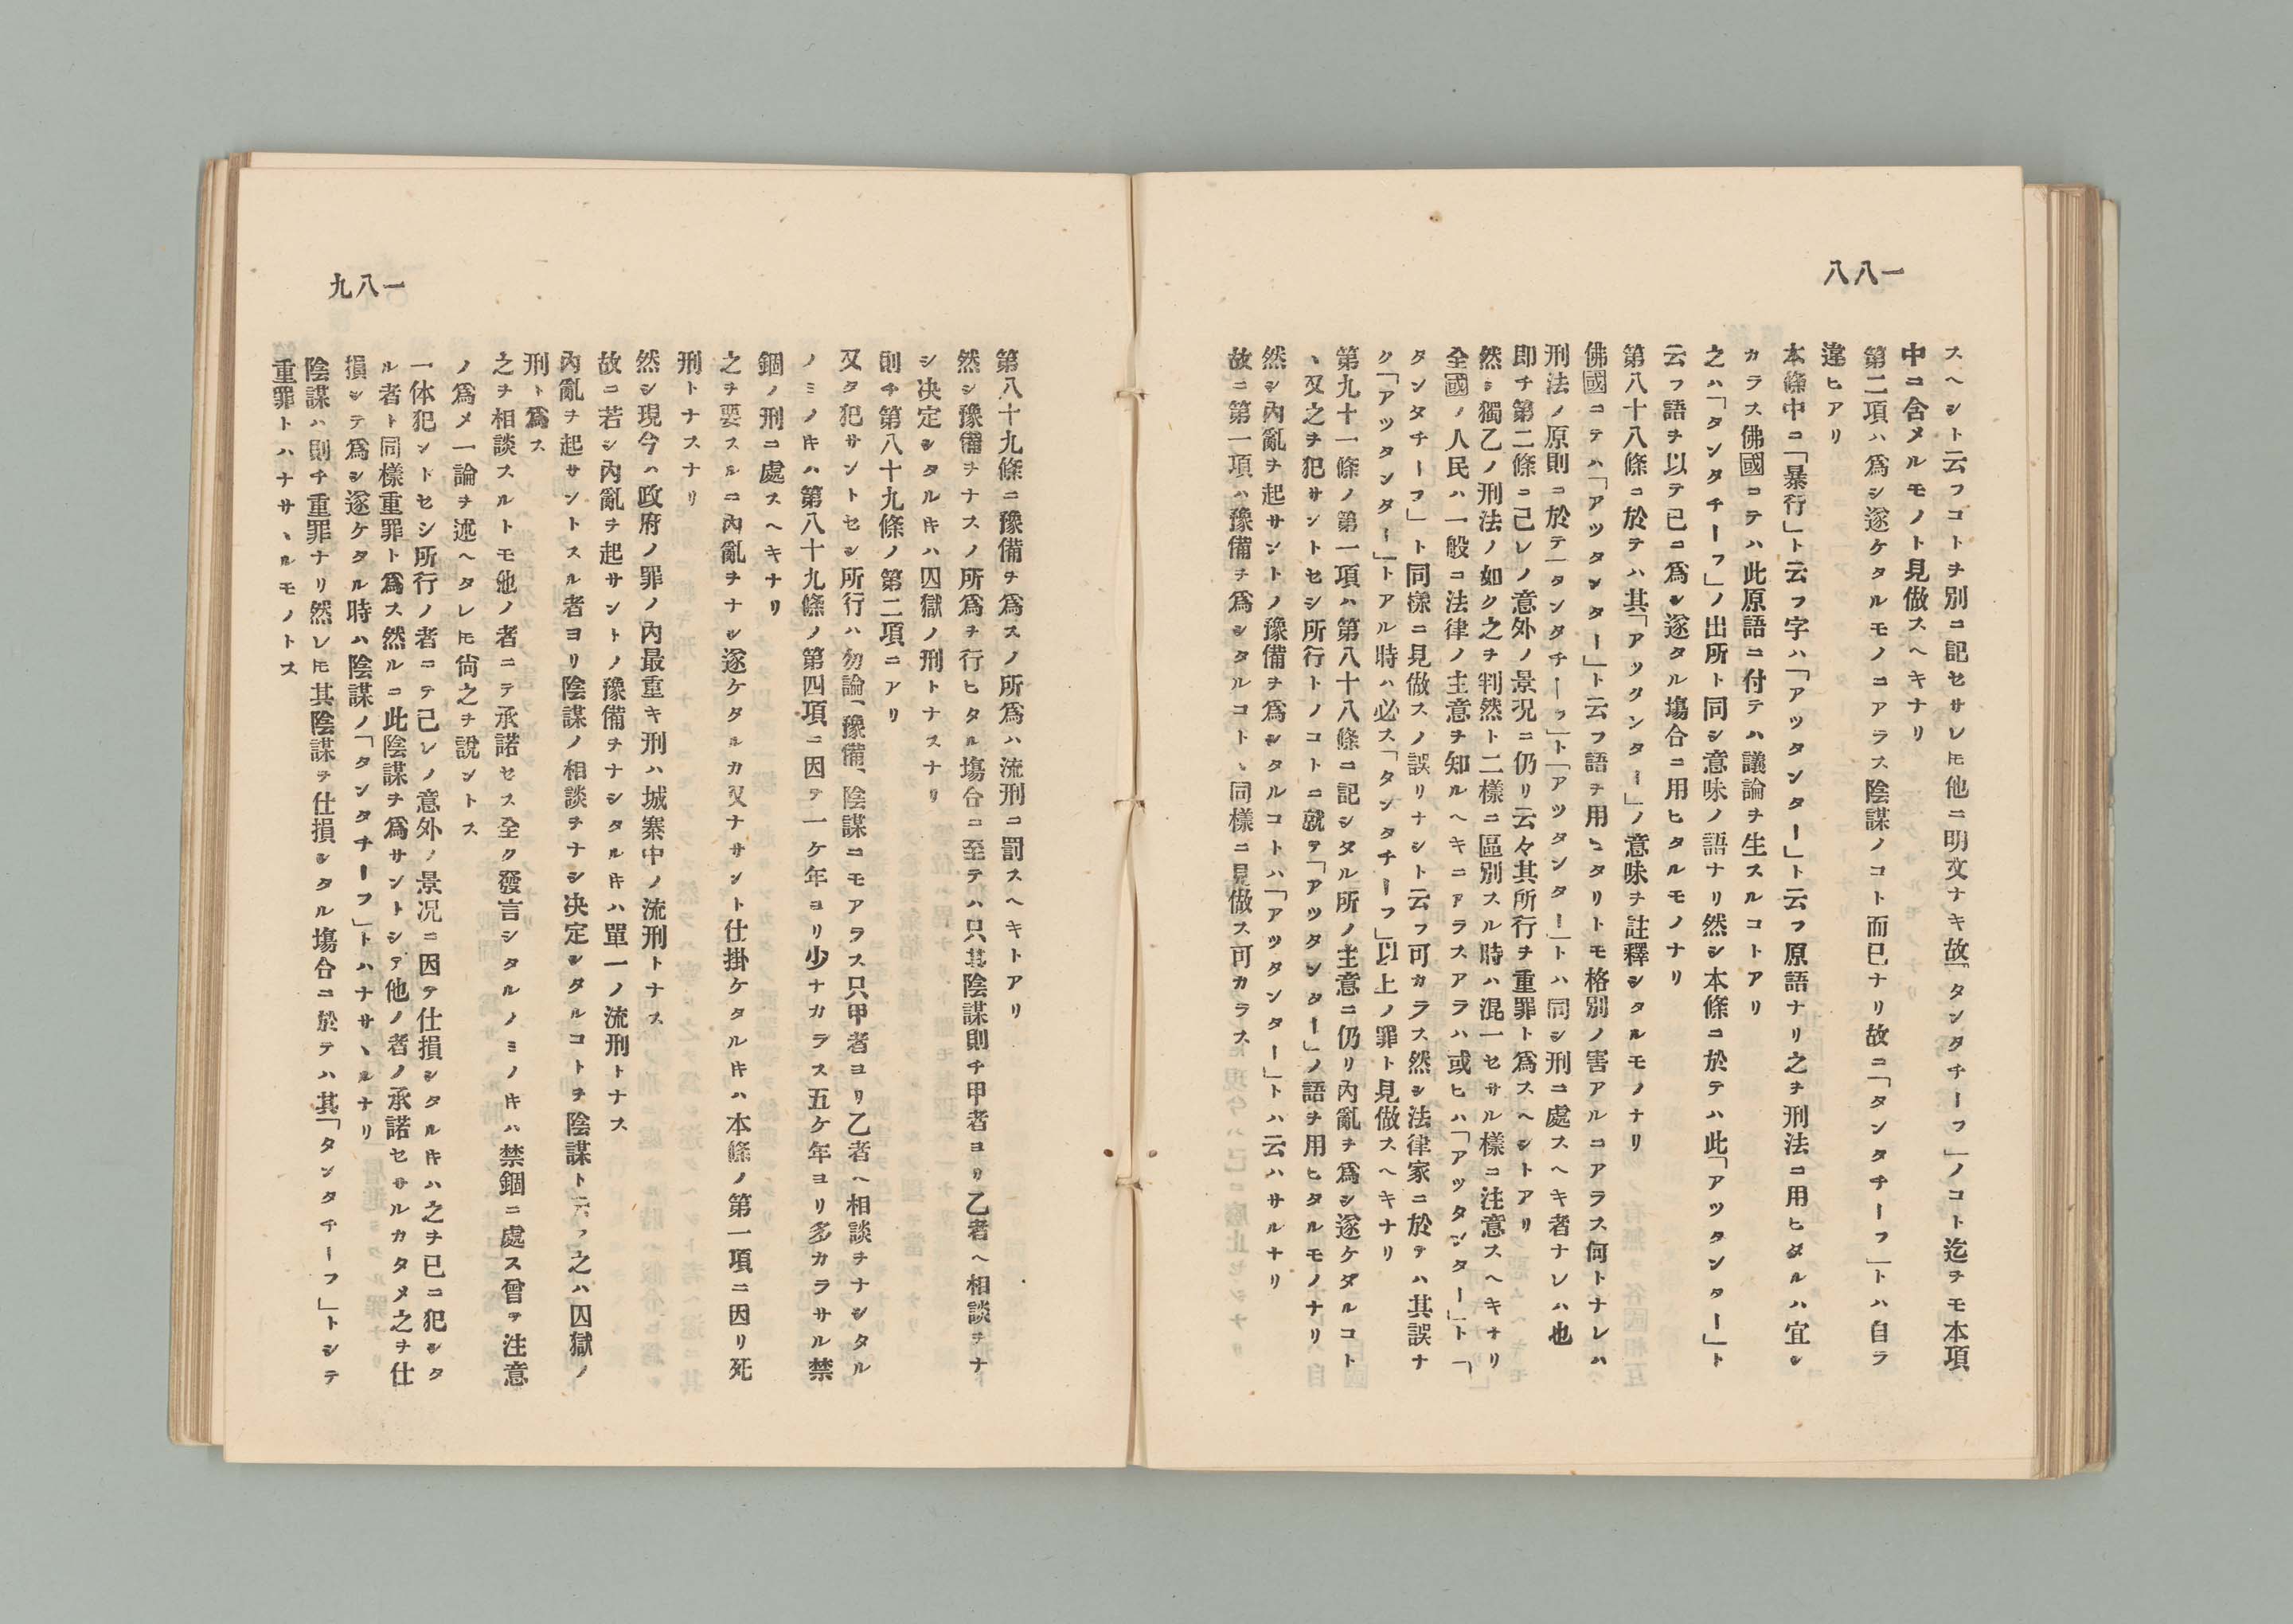 一八八
スヘシト云フコトヲ別ニ記セサレ𪜈他ニ明文ナキ故「タンタチーフ」ノコト迄ヲモ本項
中ニ含メルモノト見做スヘキナリ
第二項ハ爲シ遂ケタルモノニアラス陰謀ノコト而已ナリ故ニ「タンタチーフ」トハ自ラ
違ヒアリ
本條中ニ「暴行」ト云フ字ハ「アツタンター」ト云フ原語ナリ之ヲ刑法ニ用ヒタルハ宜シ
カラス佛國ニテハ此原語ニ付テハ議論ヲ生スルコトアリ
之ハ「タンタチーフ」ノ出所ト同シ意味ノ語ナリ然シ本條ニ於テハ此「アツタンター」ト
云フ語ヲ以テ已ニ爲シ遂タル塲合ニ用ヒタルモノナリ
第八十八條ニ於テハ其「アツタンター」ノ意味ヲ註釋シタルモノナリ
佛國ニテハ「アツタンター」ト云フ語ヲ用ヒタリトモ格別ノ害アルニアラス何トナレハ
刑法ノ原則ニ於テ「タンタチーフ」ト「アツタンター」トハ同シ刑ニ處スヘキ者ナレハ也
即チ第二條ニ己レノ意外ノ景况ニ仍リ云々其所行ヲ重罪ト爲スヘシトアリ
然シ獨乙ノ刑法ノ如ク之ヲ判然ト二樣ニ區別スル時ハ混一セサル樣ニ注意スヘキナリ
全國ノ人民ハ一般ニ法律ノ主意ヲ知ルヘキニアラスアラハ或ヒハ「アツタンター」ト「
タンタチーフ」ト同樣ニ見做スノ誤リナシト云フ可カラス然シ法律家ニ於テハ其誤ナ
ク「アツタンター」トアル時ハ必ス「タンタチーフ」以上ノ罪ト見做スヘキナリ
第九十一條ノ第一項ハ第八十八條ニ記シタル所ノ主意ニ仍リ內亂ヲ爲シ遂ケタルコト
ヽ又之ヲ犯サントセシ所行トノコトニ就テ「アツタンター」ノ語ヲ用ヒタルモノナリ
然シ內亂ヲ起サントノ豫備ヲ爲シタルコトハ「アツタンター」トハ云ハサルナリ
故ニ第一項ハ豫備ヲ爲シタルコトヽ同樣ニ見做ス可カラス
一八九
第八十九條ニ豫備ヲ爲スノ所爲ハ流刑ニ罰スヘキトアリ
然シ豫備ヲナスノ所爲ヲ行ヒタル塲合ニ至テハ只其陰謀則チ甲者ヨリ乙者ヘ相談ヲナ
シ决定シタルキハ囚獄ノ刑トナスナリ
則チ第八十九條ノ第二項ニアリ
又タ犯サントセシ所行ハ勿論、豫備、陰謀ニモアラス只甲者ヨリ乙者ヘ相談ヲナシタル
ノミノキハ第八十九條ノ第四項ニ因テ一ケ年ヨリ少ナカラス五ケ年ヨリ多カラサル禁
錮ノ刑ニ處スヘキナリ
之ヲ要スルニ內亂ヲナシ遂ケタルカ又ナサント仕掛ケタルキハ本條ノ第一項ニ因リ死
刑トナスナリ
然シ現今ハ政府ノ罪ノ內最重キ刑ハ城寨中ノ流刑トナス
故ニ若シ內亂ヲ起サントノ豫備ヲナシタルキハ單一ノ流刑トナス
內亂ヲ起サントスル者ヨリ陰謀ノ相談ヲナシ决定シタルコトヲ陰謀ト云フ之ハ囚獄ノ
刑ト爲ス
之ヲ相談スルトモ他ノ者ニテ承諾セス全ク發言シタルノミノキハ禁錮ニ處ス曾テ注意
ノ爲メ一論ヲ述ヘタレ𪜈尙之ヲ說ントス
一体犯ントセシ所行ノ者ニテ己レノ意外ノ景况ニ因テ仕損シタルキハ之ヲ已ニ犯シタ
ル者ト同樣重罪ト爲ス然ルニ此陰謀ヲ爲サントシテ他ノ者ノ承諾セサルカタメ之ヲ仕
損シテ爲シ遂ケタル時ハ陰謀ノ「タンタチーフ」トハナサヽルナリ
陰謀ハ則チ重罪ナリ然レ𪜈其陰謀ヲ仕損シタル塲合ニ於テハ其「タンタチーフ」トシテ
重罪トハナサヽルモノトス